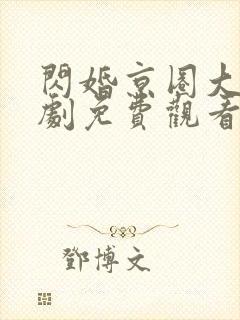 閃婚京圈大
劇免費觀看
鄧博文